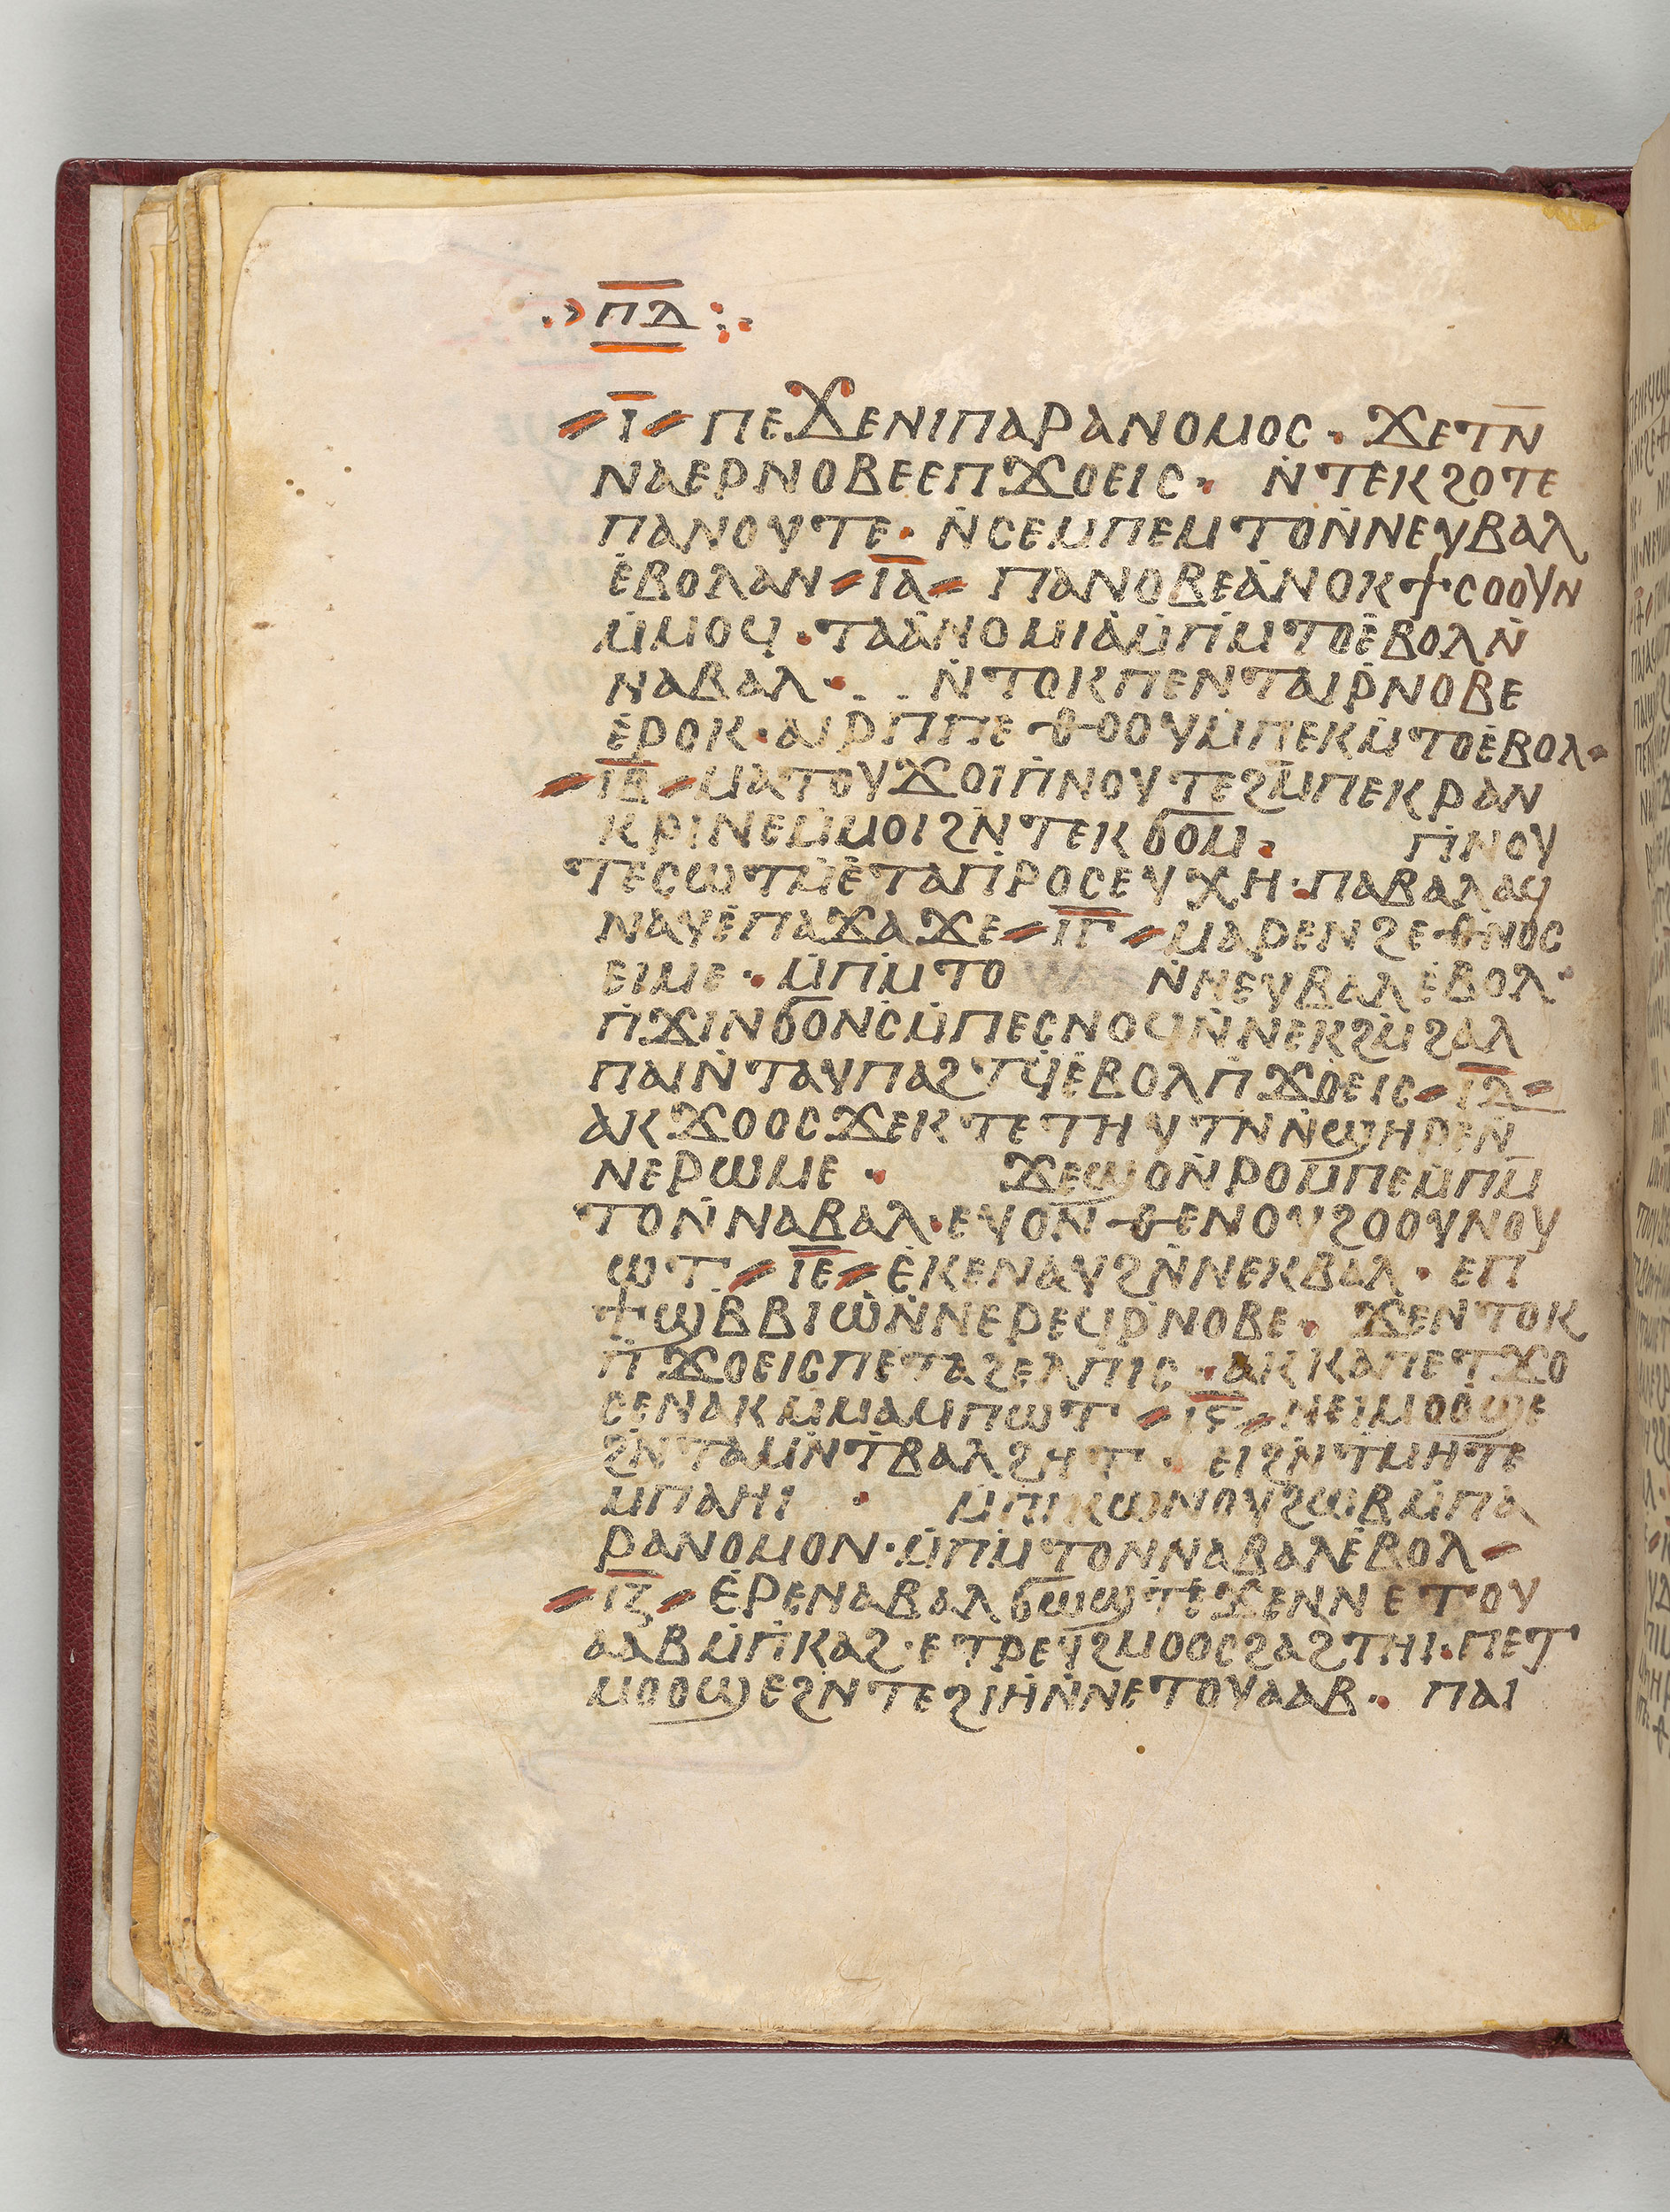 ⲡⲇ
ⲓ̅ ⲡⲉϪⲉⲛⲓⲡⲁⲣⲁⲛⲟⲙⲟⲥ · ϫⲉⲧⲛ̅
ⲛⲁⲉⲣⲛⲟⲃⲉⲉⲡϫⲟⲉⲓⲥ · ⲛ̇ⲧⲉⲕϩⲟⲧⲉ
ⲡⲁⲛⲟⲩⲧⲉ · ⲛ̇ⲥⲉⲙⲡⲉⲙⲧⲟⲛ̇ⲛⲉⲩⲃⲁⲗ
ⲉ̇ⲃⲟⲗⲁⲛ ⲓ̅ⲁ̅ ⲡⲁⲛⲟⲃⲉⲁ̇ⲛⲟⲕϯⲥⲟⲟⲩⲛ
ⲙ̇ⲙⲟϥ · ⲧⲁⲁ̇ⲛⲟⲙⲓⲁ̇ⲙ̇ⲡⲙ̇ⲧⲟⲉ̇ⲃⲟⲗⲛ̇
ⲛⲁⲃⲁⲗ · ⲛ̇ⲧⲟⲕⲡⲉⲛⲧⲁⲓⲣ̇ⲛⲟⲃⲉ
ⲉ̇ⲣⲟⲕ · ⲁⲓⲣ̇ⲡⲡⲉⲑⲟⲟⲩⲙ̇ⲡⲉⲕⲙ̇ⲧⲟⲉ̇ⲃⲟⲗ ·
ⲓ̅ⲃ̅ ⲙⲁⲧⲟⲩϫⲟⲓⲡ̇ⲛⲟⲩⲧⲉϩⲙ̅ⲡⲉⲕⲣⲁⲛ
ⲕⲣⲓⲛⲉⲙ̇ⲙⲟⲓϩⲛ̇ⲧⲉⲕϭⲟⲙ · ⲡ̇ⲛⲟⲩ
ⲧⲉⲥⲱⲧⲙ̇ⲉ̇ⲧⲁⲡ̇ⲣⲟⲥⲉⲩⲭⲏ · ⲡⲁⲃⲁⲗⲁϥ
ⲛⲁⲩⲉ̇ⲡⲁϫⲁϫⲉ ⲓ̅ⲅ̅ ⲙⲁⲣⲉⲛϩⲉⲑⲛⲟⲥ
ⲉⲓⲙⲉ · ⲙ̇ⲡⲙ̇ⲧⲟ ⲛ̇ⲛⲉⲩⲃⲁⲗⲉ̇ⲃⲟⲗ ·
ⲡ̇ϫⲓⲛϭⲟⲛⲥ̇ⲙ̇ⲡⲉⲥⲛⲟϥⲛ̇ⲛⲉⲕϩⲙ̇ϩⲁⲗ
ⲡⲁⲓⲛ̇ⲧⲁⲩⲡⲁϩⲧϥ̇ⲉ̇ⲃⲟⲗⲡ̇ϫⲟⲉⲓⲥ ⲓ̅ⲇ̅
ⲁⲕϫⲟⲟⲥϫⲉⲕⲧⲉⲧⲏⲩⲧⲛ̇ⲛ̇ϣⲏⲣⲉⲛ̅
ⲛⲉⲣⲱⲙⲉ · ϫⲉϣⲟⲛ̇ⲣⲟⲙ̇ⲡⲉⲙ̇ⲡⲙ̅
ⲧⲟⲛ̇ⲛⲁⲃⲁⲗ · ⲉⲩⲟⲛ̇ⲑⲉⲛⲟⲩϩⲟⲟⲩⲛⲟⲩ
ⲱⲧ ⲓ̅ⲉ̅ ⲉ̇ⲕⲉⲛⲁⲩϩⲛ̇ⲛⲉⲕⲃⲁⲗ · ⲉⲡ
ϯϣⲃ̇ⲃⲓⲱ̇ⲛ̇ⲛⲉⲣⲉϥⲣ̇ⲛⲟⲃⲉ · ϫⲉⲛⲧⲟⲕ
ⲡ̇ϫⲟⲉⲓⲥⲡⲉⲧⲁϩⲉⲗⲡⲓⲥ · ⲁⲕⲕⲁⲡⲉⲧϫⲟ
ⲥⲉⲛⲁⲕⲙ̇ⲙⲁⲙⲡⲱⲧ ⲓ̅ⲋ̅ ⲛⲉⲓⲙⲟⲟϣⲉ
ϩⲛ̇ⲧⲁⲙⲛ̇ⲧⲃⲁⲗϩⲏⲧ · ⲉⲓϩⲛ̇ⲧⲙⲏⲧⲉ
ⲙⲡⲁⲏⲓ · ⲙ̇ⲡⲓⲕⲱⲛⲟⲩϩⲱⲃⲙ̇ⲡⲁ
ⲣⲁⲛⲟⲙⲟⲛ · ⲙ̇ⲡⲙ̇ⲧⲟⲛⲛⲁⲃⲁⲗⲉ̇ⲃⲟⲗ
ⲓ̅ⲍ̅ ⲉ̇ⲣⲉⲛⲁⲃⲁⲗϭⲱϣⲧ̇ⲉ̇ϫⲉⲛⲛⲉⲧⲟⲩ
ⲁⲁⲃⲙ̇ⲡ̇ⲕⲁϩ · ⲉⲧⲣⲉⲩϩⲙⲟⲟⲥϩⲁϩⲧⲏⲓ · ⲡⲉⲧ
ⲙⲟⲟϣⲉϩⲛⲧⲉϩⲓⲏⲛ̇ⲛⲉⲧⲟⲩⲁⲁⲃ · ⲡⲁⲓ